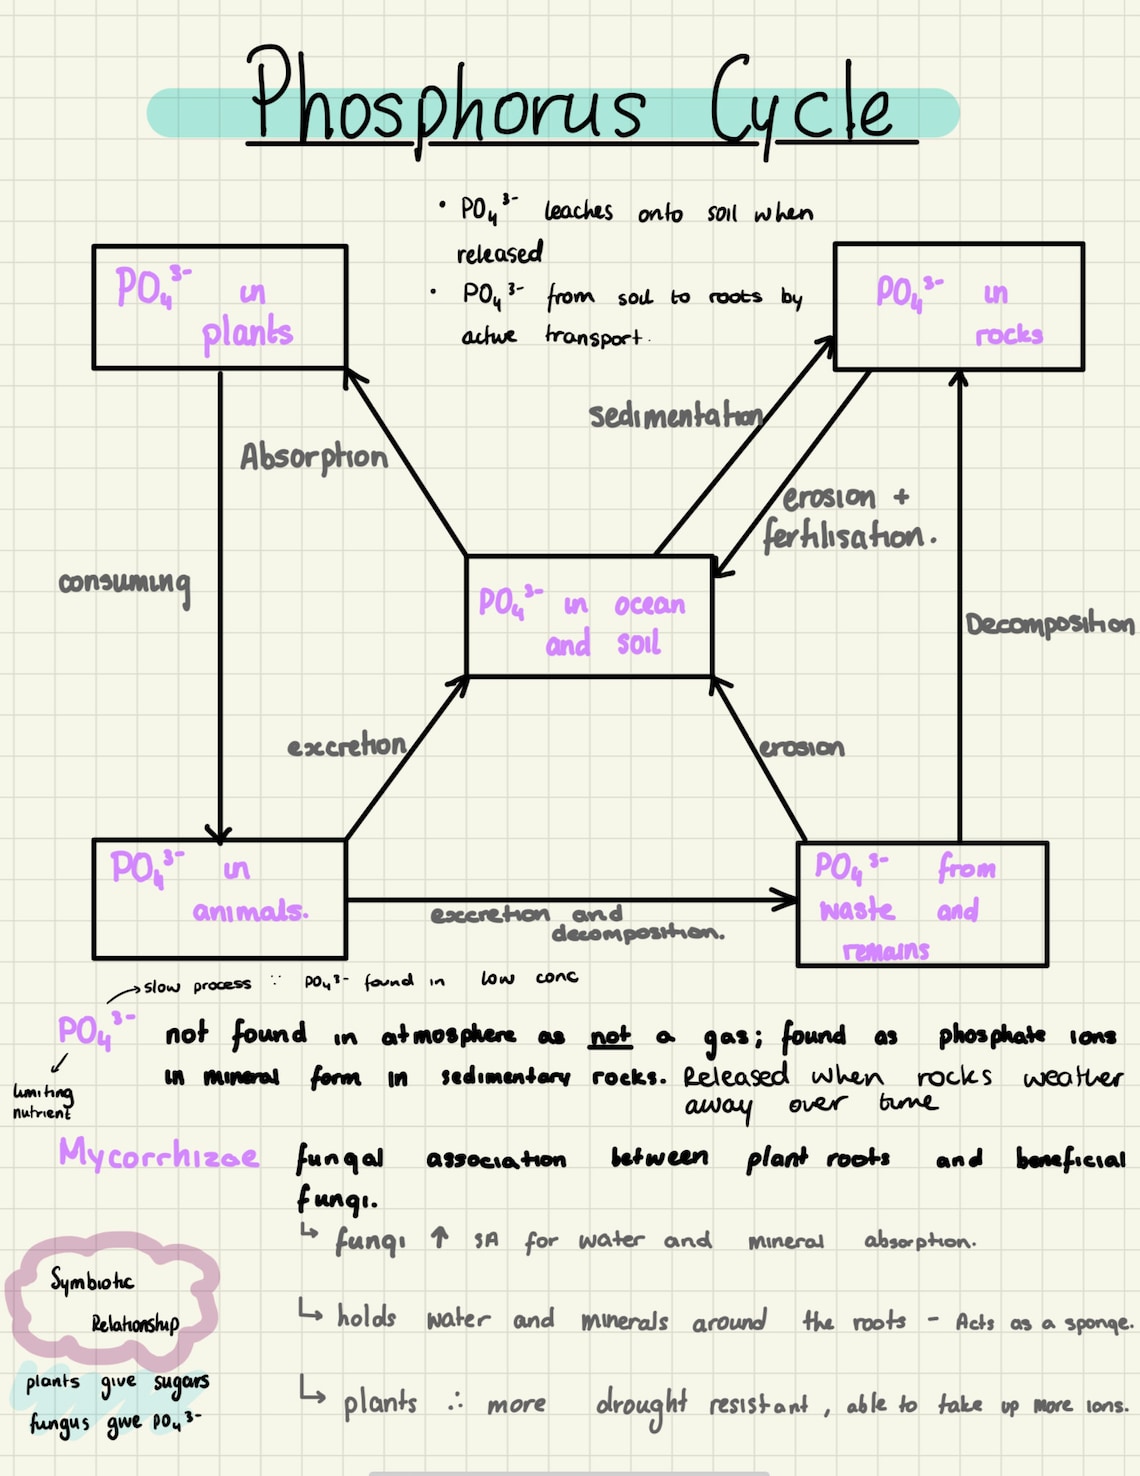 Phosphorus Cycle
• PO₄³⁻ leaches onto soil when
released
• PO₄³⁻ from soil to roots by
active transport.
PO₄³⁻ in
plants
PO₄³⁻ in
rocks
sedimentation
Absorption
erosion +
fertilisation.
consuming
PO₄³⁻ in ocean
and soil
Decomposition
excretion
erosion
PO₄³⁻ in
animals.
PO₄³⁻ from
waste and
remains
excretion and
decomposition.
slow process ∵ PO₄³⁻ found in low conc
PO₄³⁻ not found in atmosphere as not a gas; found as phosphate ions
in mineral form in sedimentary rocks. Released when rocks weather
away over time
limiting
nutrient
Mycorrhizae fungal association between plant roots and beneficial
fungi.
↳ fungi ↑ SA for water and mineral absorption.
Symbiotic
Relationship
↳ holds water and minerals around the roots - Acts as a sponge.
plants give sugars
fungus give PO₄³⁻
↳ plants ∴ more drought resistant, able to take up more ions.